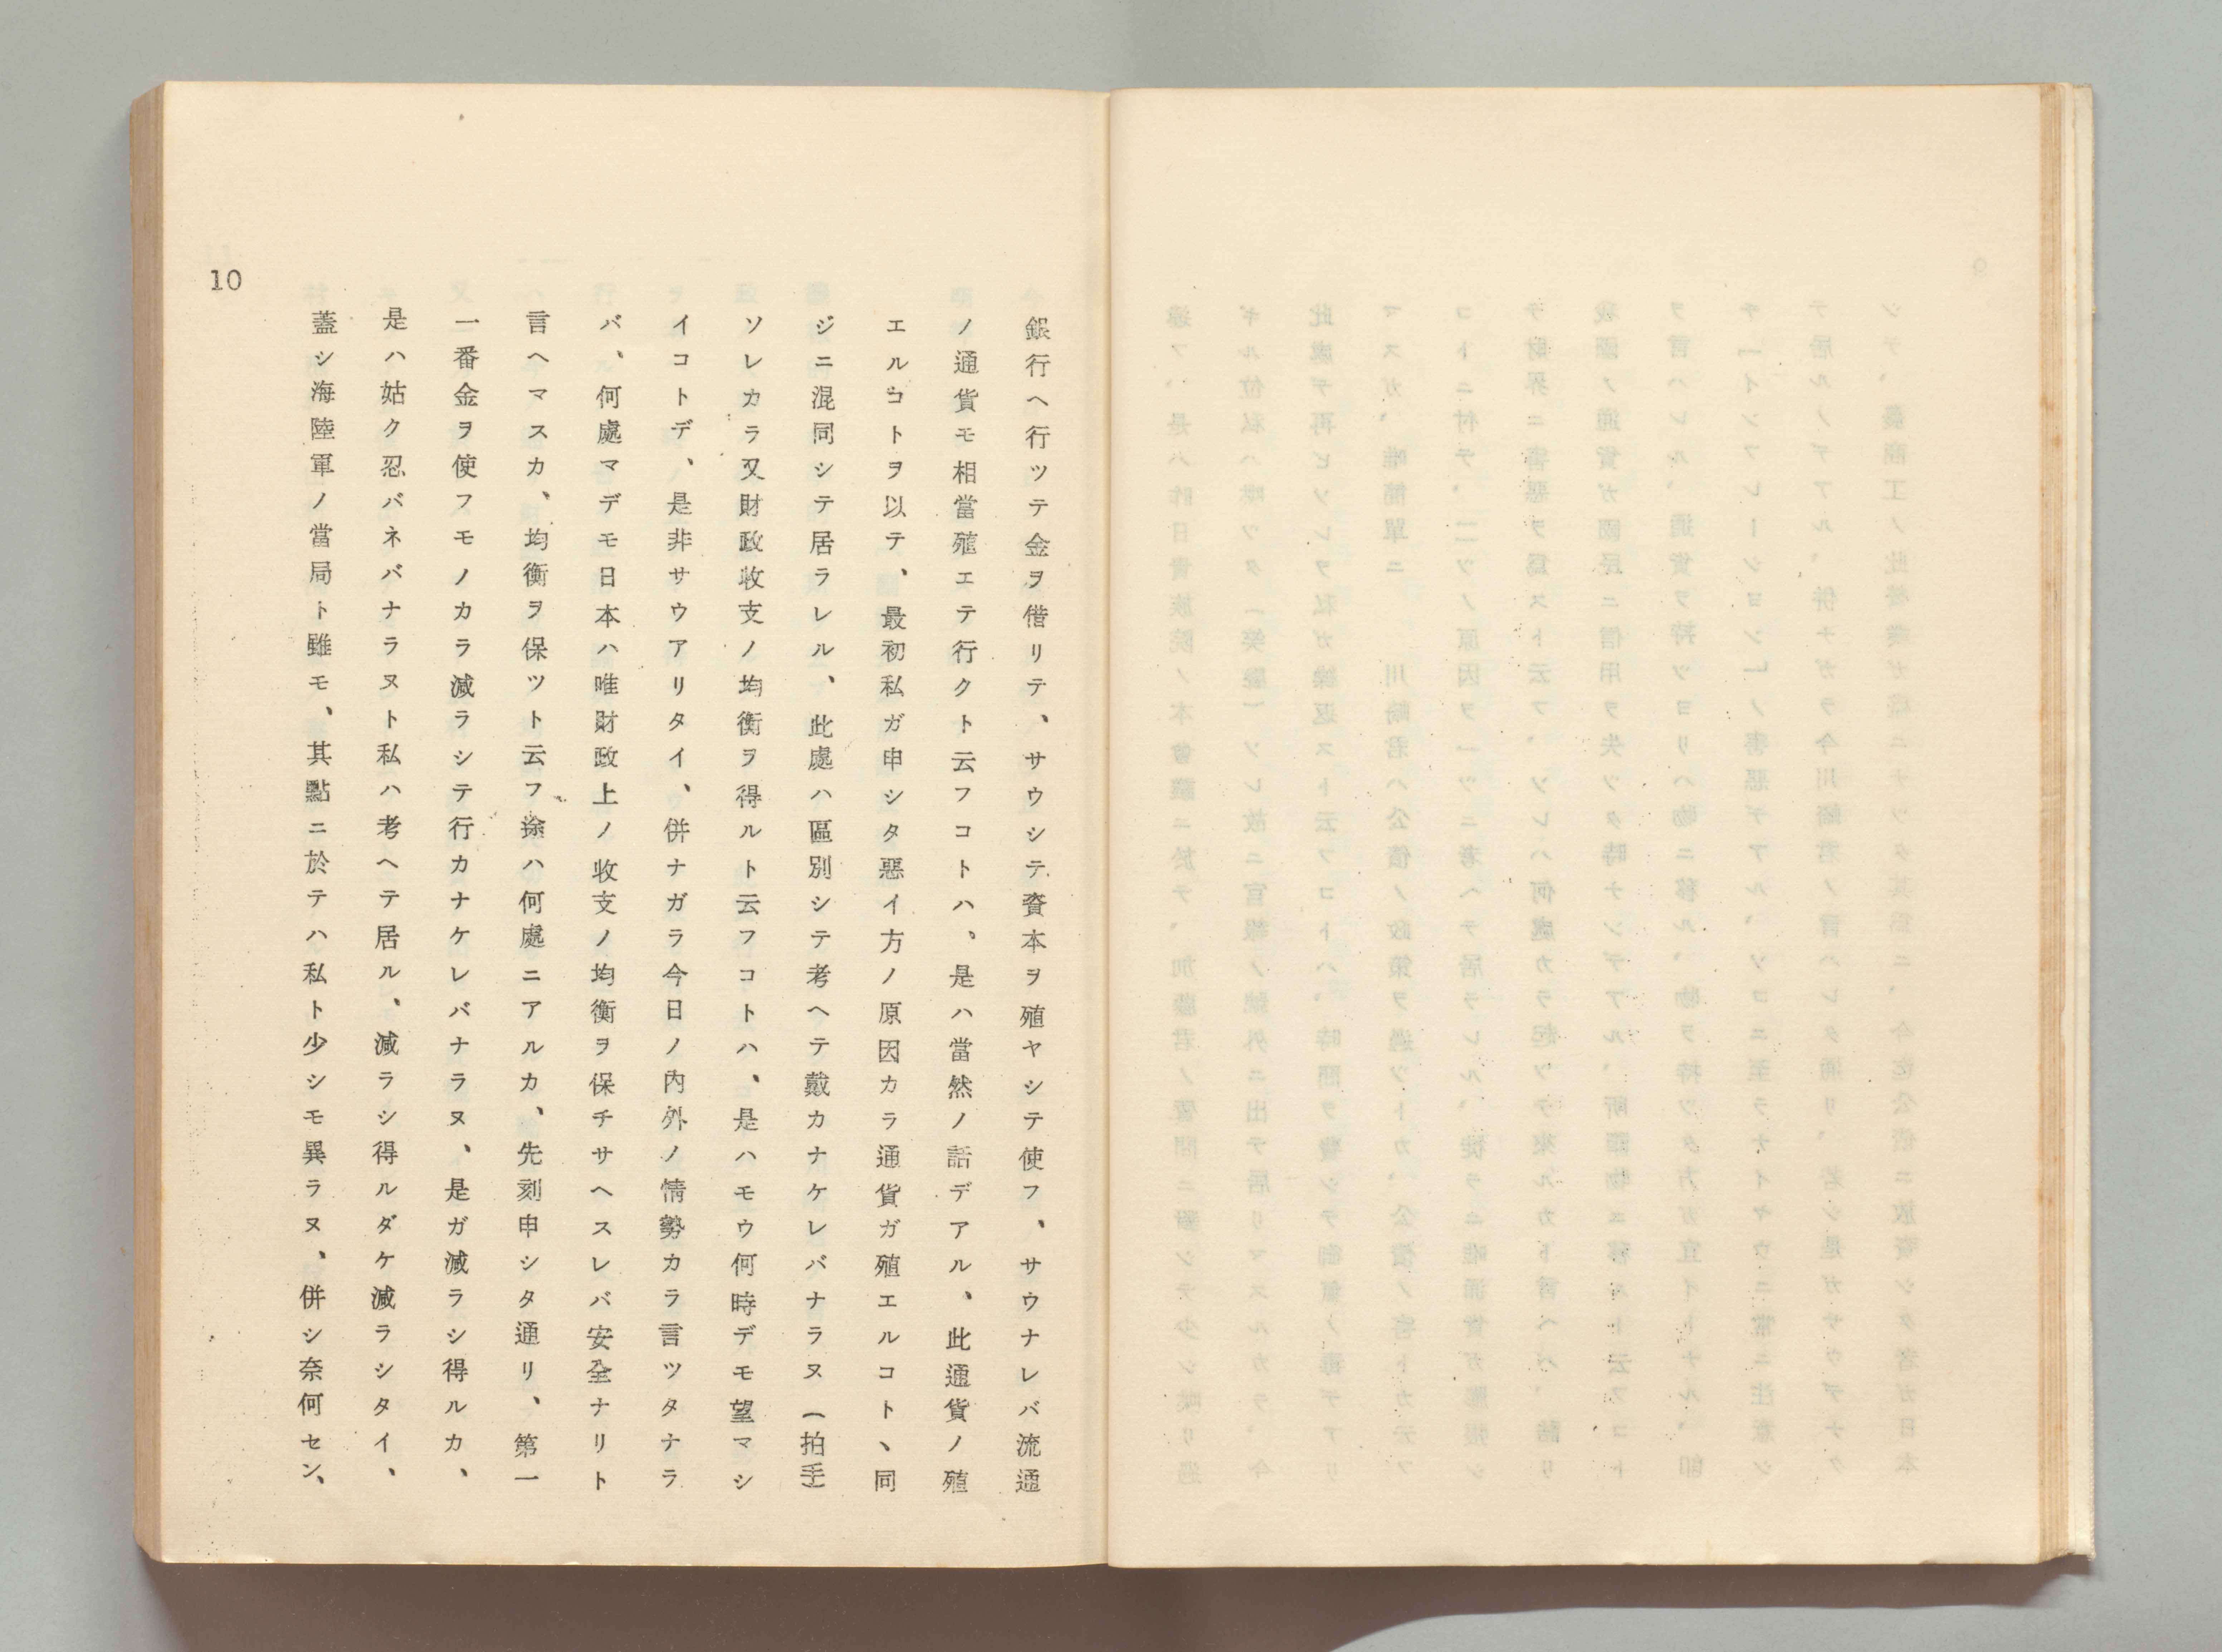 銀行ヘ行ツテ金ヲ借リテ、サウシテ資本ヲ殖ヤシテ使フ、サウナレバ流通
ノ通貨モ相當殖エテ行クト云フコトハ、是ハ當然ノ話デアル、此通貨ノ殖
エルコトヲ以テ、最初私ガ申シタ惡イ方ノ原因カラ通貨ガ殖エルコト、同
ジニ混同シテ居ラレル、此處ハ區別シテ考ヘテ戴カナケレバナラヌ（拍手）
ソレカラ又財政收支ノ均衡ヲ得ルト云フコトハ、是ハモウ何時デモ望マシ
イコトデ、是非サウアリタイ、併ナガラ今日ノ內外ノ情勢カラ言ツタナラ
バ、何處マデモ日本ハ唯財政上ノ收支ノ均衡ヲ保チサヘスレバ安全ナリト
言ヘマスカ、均衡ヲ保ツト云フ途ハ何處ニアルカ、先刻申シタ通リ、第一
一番金ヲ使フモノカラ減ラシテ行カナケレバナラヌ、是ガ減ラシ得ルカ、
是ハ姑ク忍バネバナラヌト私ハ考ヘテ居ル、減ラシ得ルダケ減ラシタイ、
蓋シ海陸軍ノ當局ト雖モ、其點ニ於テハ私ト少シモ異ラヌ、併シ奈何セン、
10